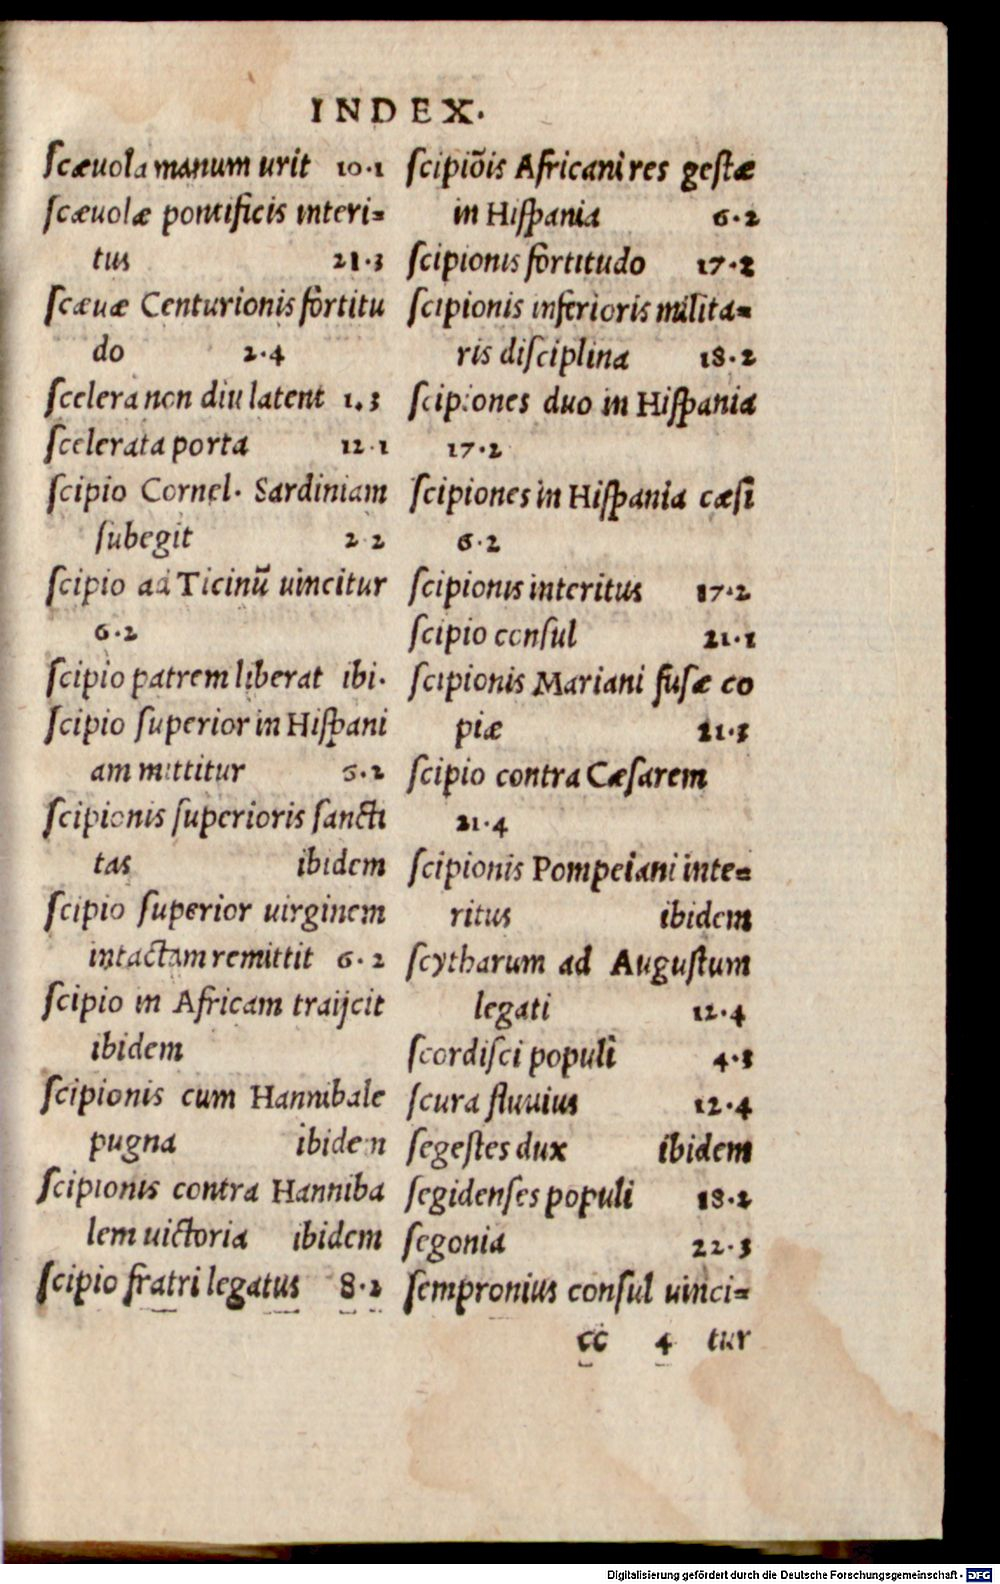 INDEX.
ſcæuola manum urit 10·1
ſcæuolæ pontificis interi=
tus 21·3
ſcæuæ Centurionis fortitu
do 2·4
ſcelera non diu latent 1.3
ſcelerata porta 12·1
ſcipio Cornel. Sardiniam
ſubegit 2 2
ſcipio ad Ticinū uincitur
6·2
ſcipio patrem liberat ibi.
ſcipio ſuperior in Hiſpani
am mittitur 6·2
ſcipionis ſuperioris ſancti
tas ibidem
ſcipio ſuperior uirginem
intactam remittit 6·2
ſcipio in Africam traijcit
ibidem
ſcipionis cum Hannibale
pugna ibidem
ſcipionis contra Hanniba
lem uictoria ibidem
ſcipio fratri legatus 8·2
ſcipiōis Africani res geſtæ
in Hiſpania 6·2
ſcipionis fortitudo 17·2
ſcipionis inferioris milita=
ris diſciplina 18·2
ſcipiones duo in Hiſpania
17·2
ſcipiones in Hiſpania cæſi
6·2
ſcipionis interitus 17·2
ſcipio conſul 21·1
ſcipionis Mariani fuſæ co
piæ 21·3
ſcipio contra Cæſarem
21·4
ſcipionis Pompeiani inte=
ritus ibidem
ſcytharum ad Auguſtum
legati 12·4
ſcordiſci populi 4·3
ſcura fluuius 12·4
ſegeſtes dux ibidem
ſegidenſes populi 18·2
ſegonia 22·3
ſempronius conſul uinci=
cc 4 tur
Digitalisierung gefördert durch die Deutsche Forschungsgemeinschaft - DFG